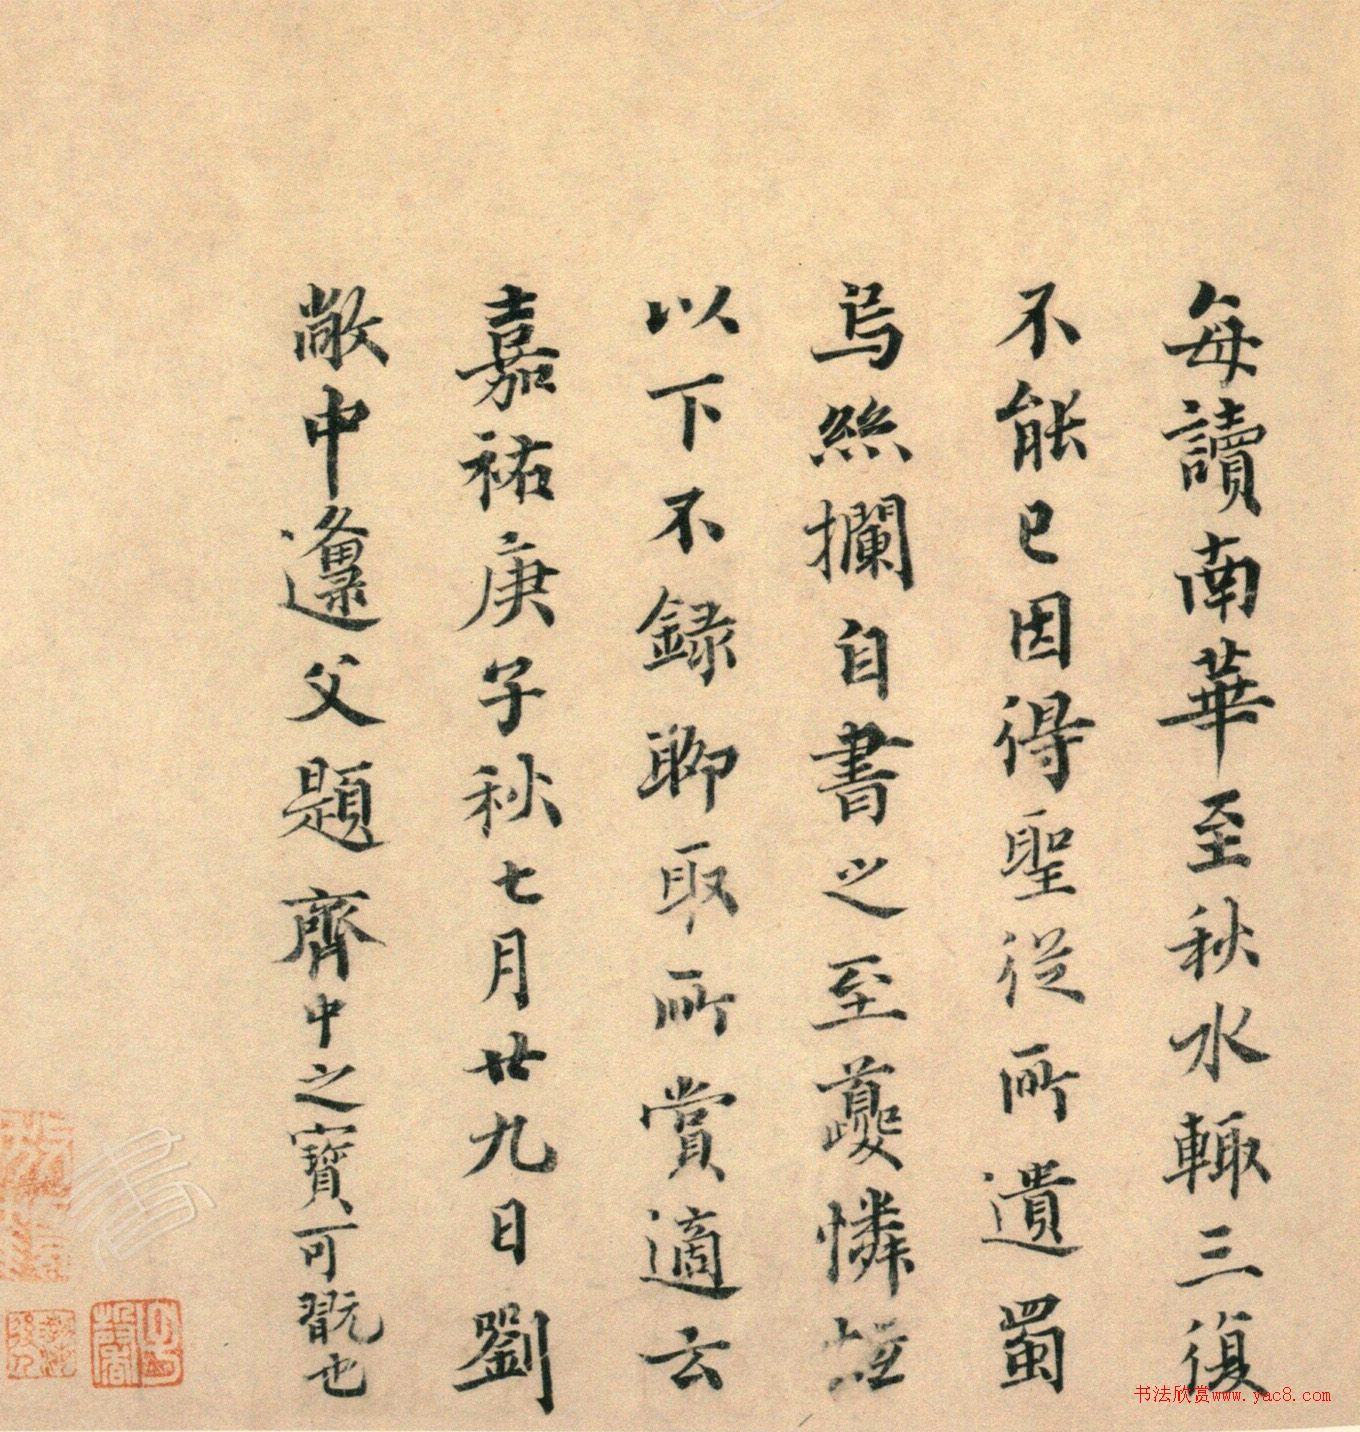 每讀南華至秋水輙三復
不能已因得聖從所遺蜀
烏絲攔自書之至夔憐
以下不録聊取所賞適云
嘉祐庚子秋七月廿九日劉
敞中邍父題齊中之寶可翫也
书法欣赏www.yac8.com